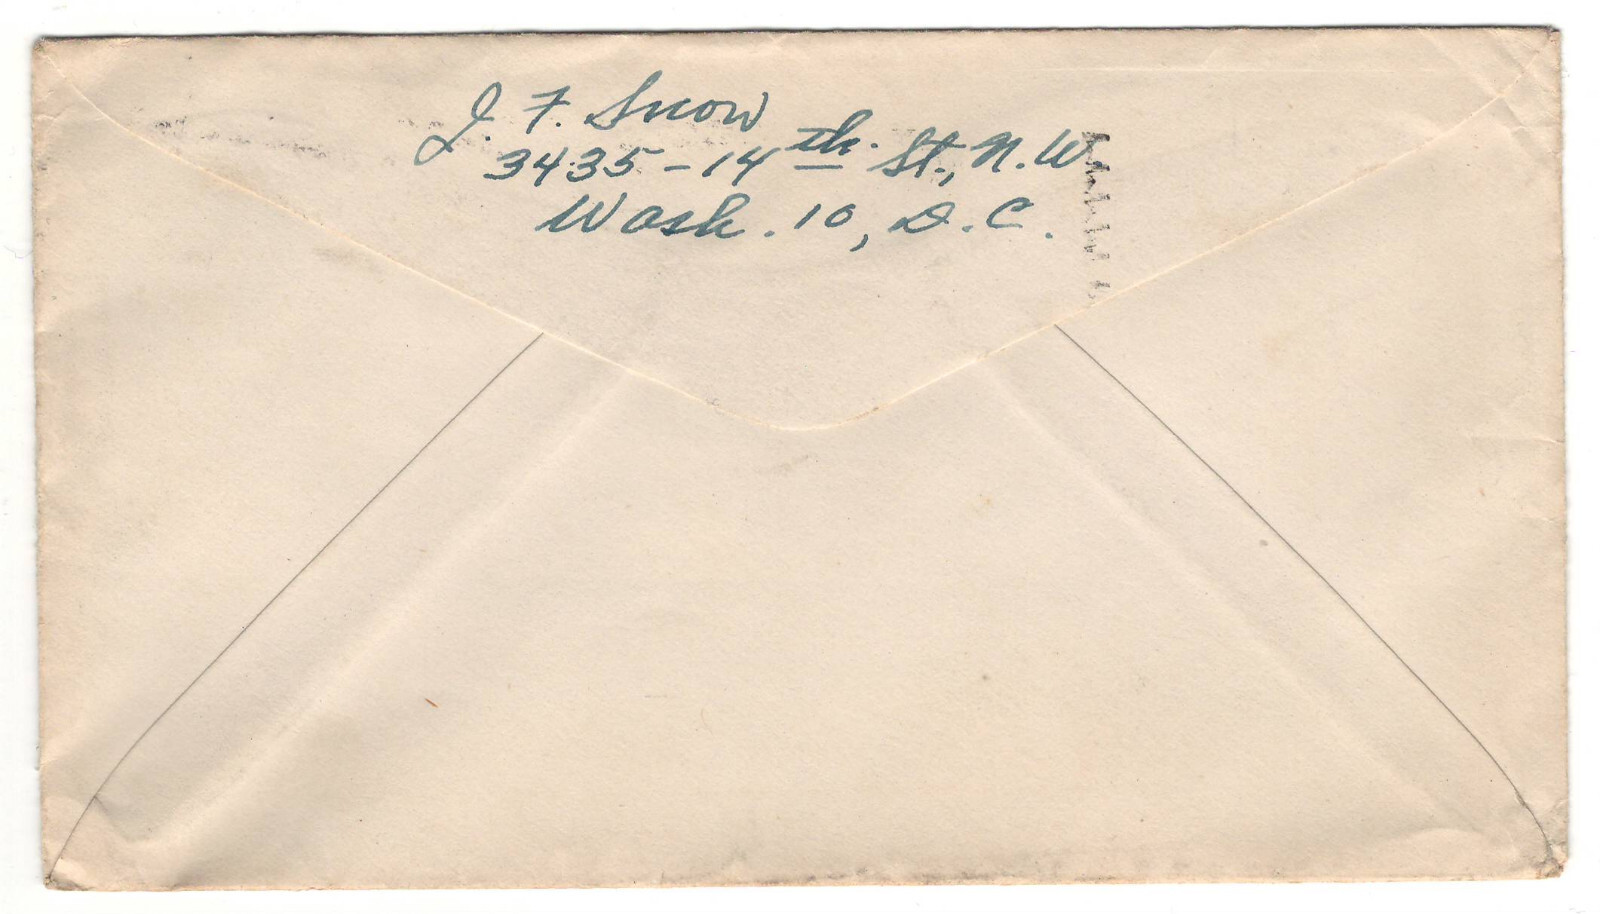 J. F. Snow
3435 - 14th. St., N.W.
Wash. 10, D.C.